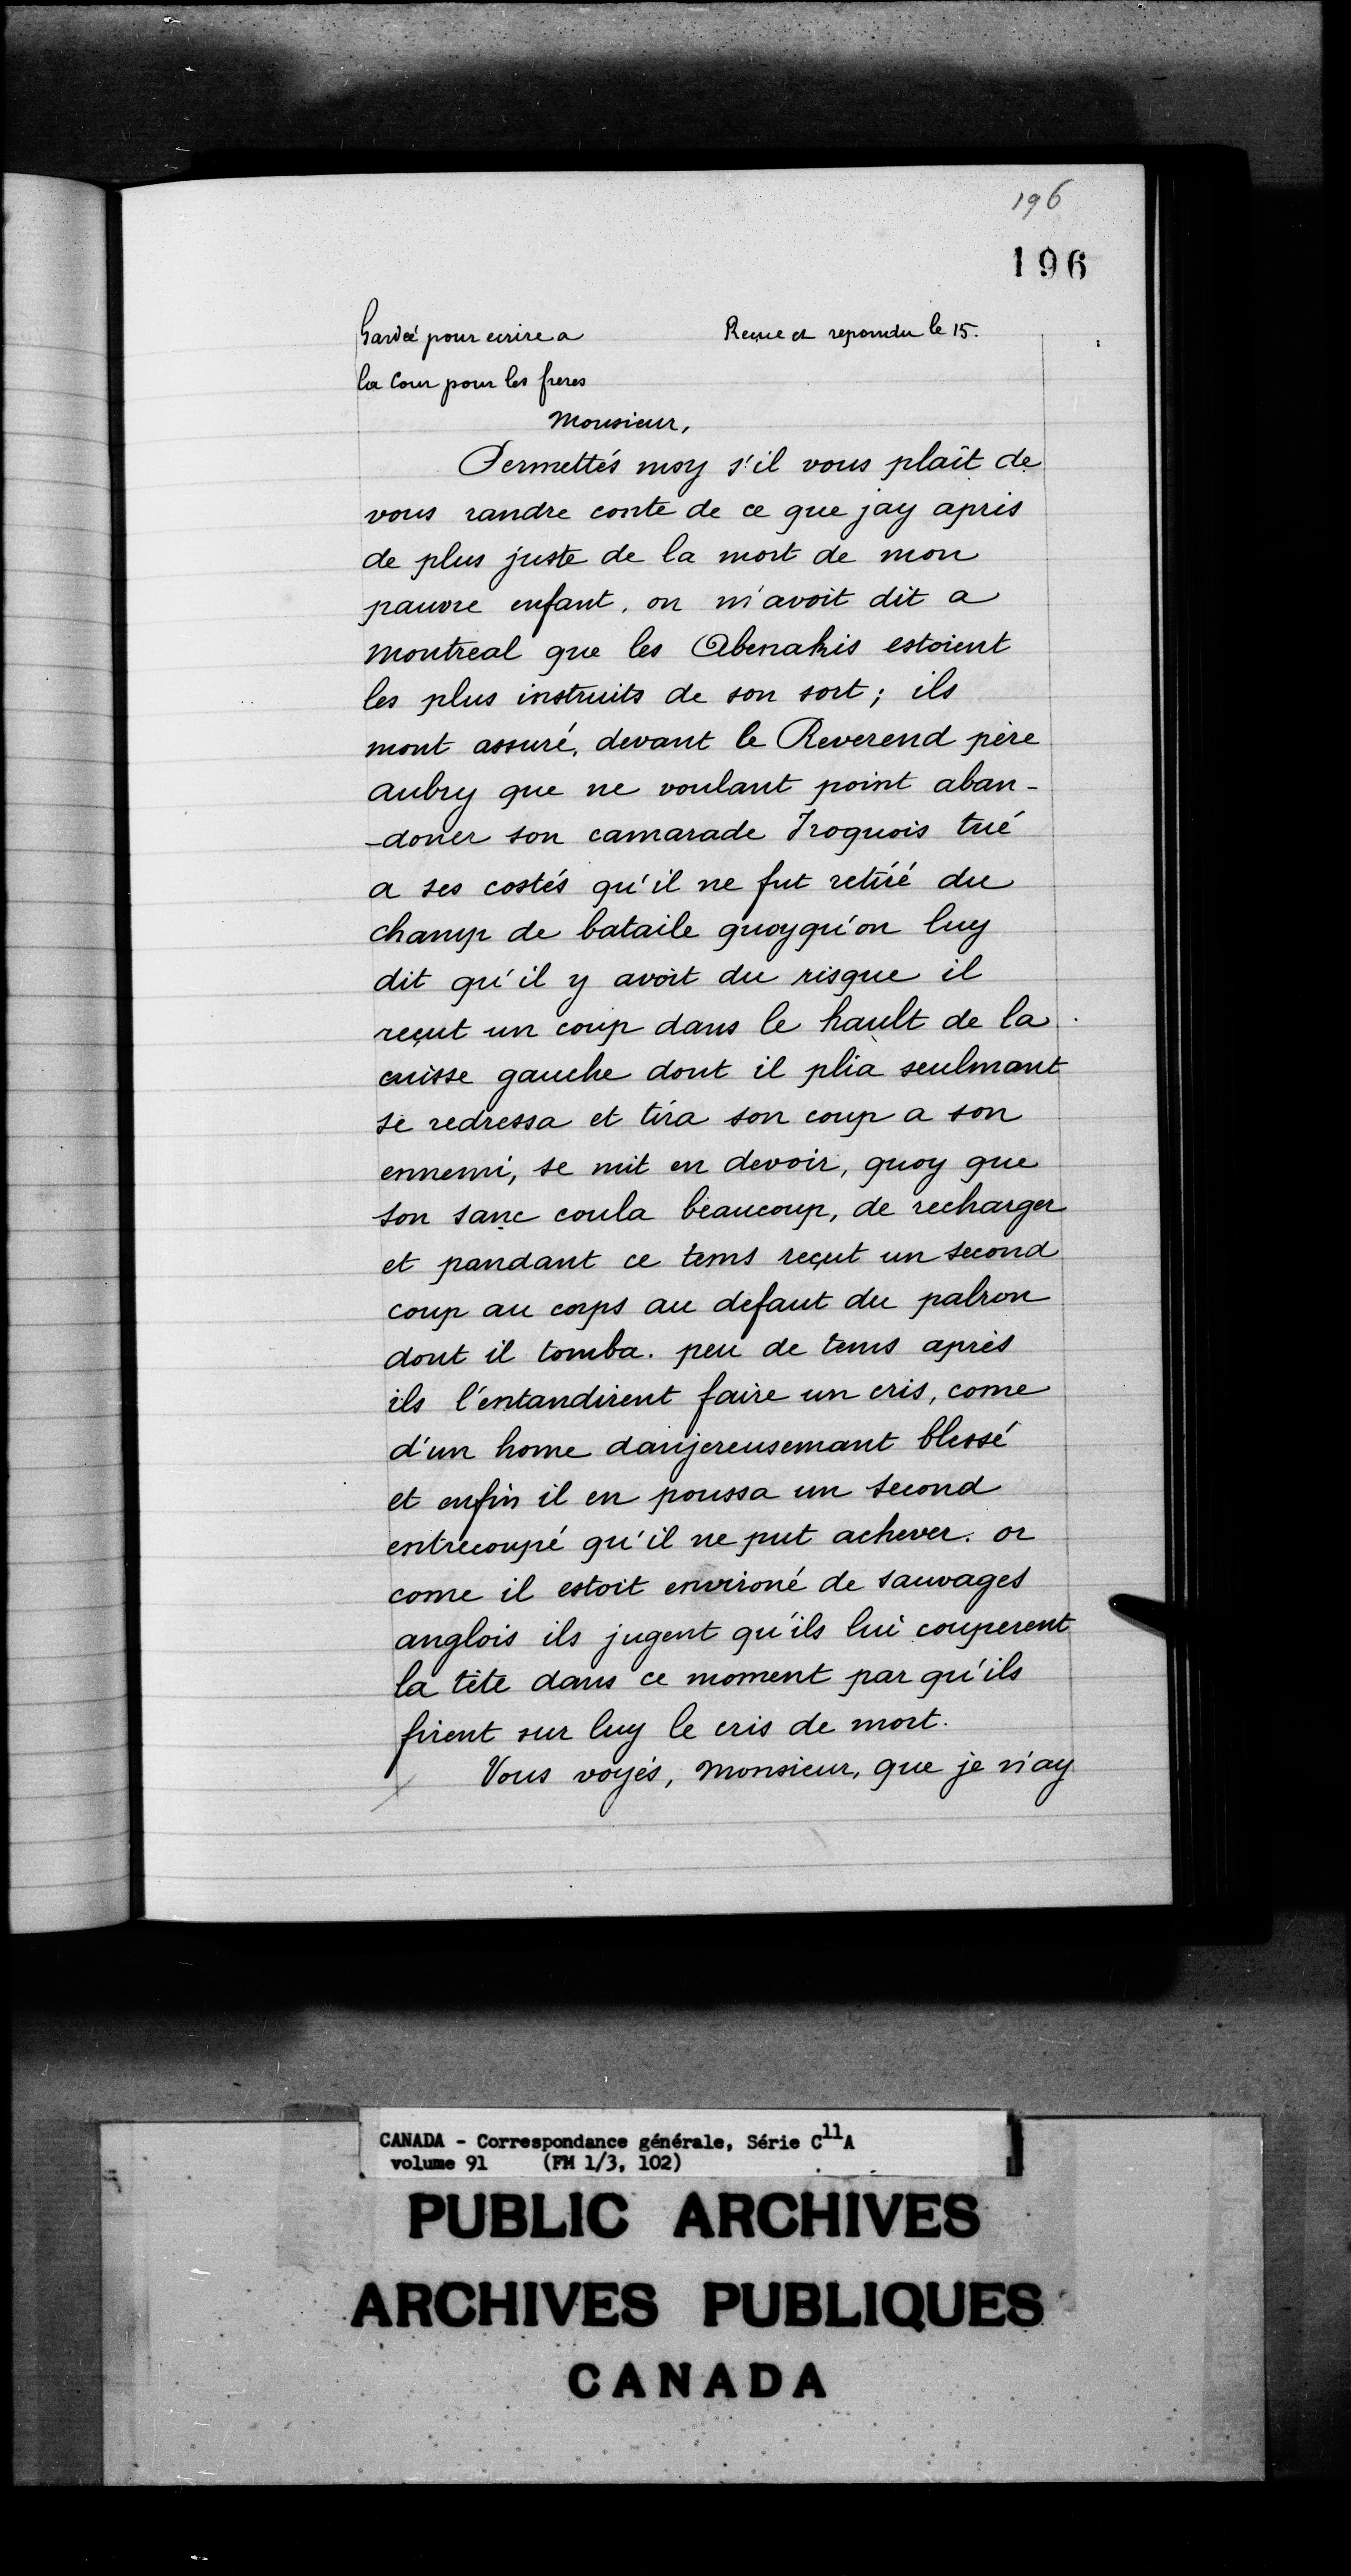 196
196
Gardée pour ecrire a
Reçue et repondu le 15.
la Cour pour les freres
Monsieur,
Permettés moy s'il vous plaît de
vous randre conte de ce que jay apris
de plus juste de la mort de mon
pauvre enfant. on m'avoit dit a
Montreal que les Abenakis estoient
les plus instruits de son sort; ils
mont assuré, devant le Reverend père
aubry que ne voulant point aban-
-doner son camarade Iroquois tué
a ses costés qu'il ne fut retiré du
champ de bataile quoyqu'on luy
dit qu'il y avoit du risque il
reçut un coup dans le hault de la
cuisse gauche dont il plia seulmant
se redressa et tira son coup a son
ennemi, se mit en devoir, quoy que
son sanc coula beaucoup, de recharger
et pandant ce tems reçut un second
coup au corps au defaut du palron
dont il tomba. peu de tems après
ils l'entandirent faire un cris, come
d'un home danjereusemant blessé
et enfin il en poussa un second
entrecoupé qu'il ne put achever. or
come il estoit environé de sauvages
anglois ils jugent qu'ils lui couperent
la tête dans ce moment par qu'ils
firent sur luy le cris de mort.
Vous voyés, Monsieur, que je n'ay
CANADA - Correspondance générale, Série C11A
volume 91 (FM 1/3, 102)
PUBLIC ARCHIVES
ARCHIVES PUBLIQUES
CANADA